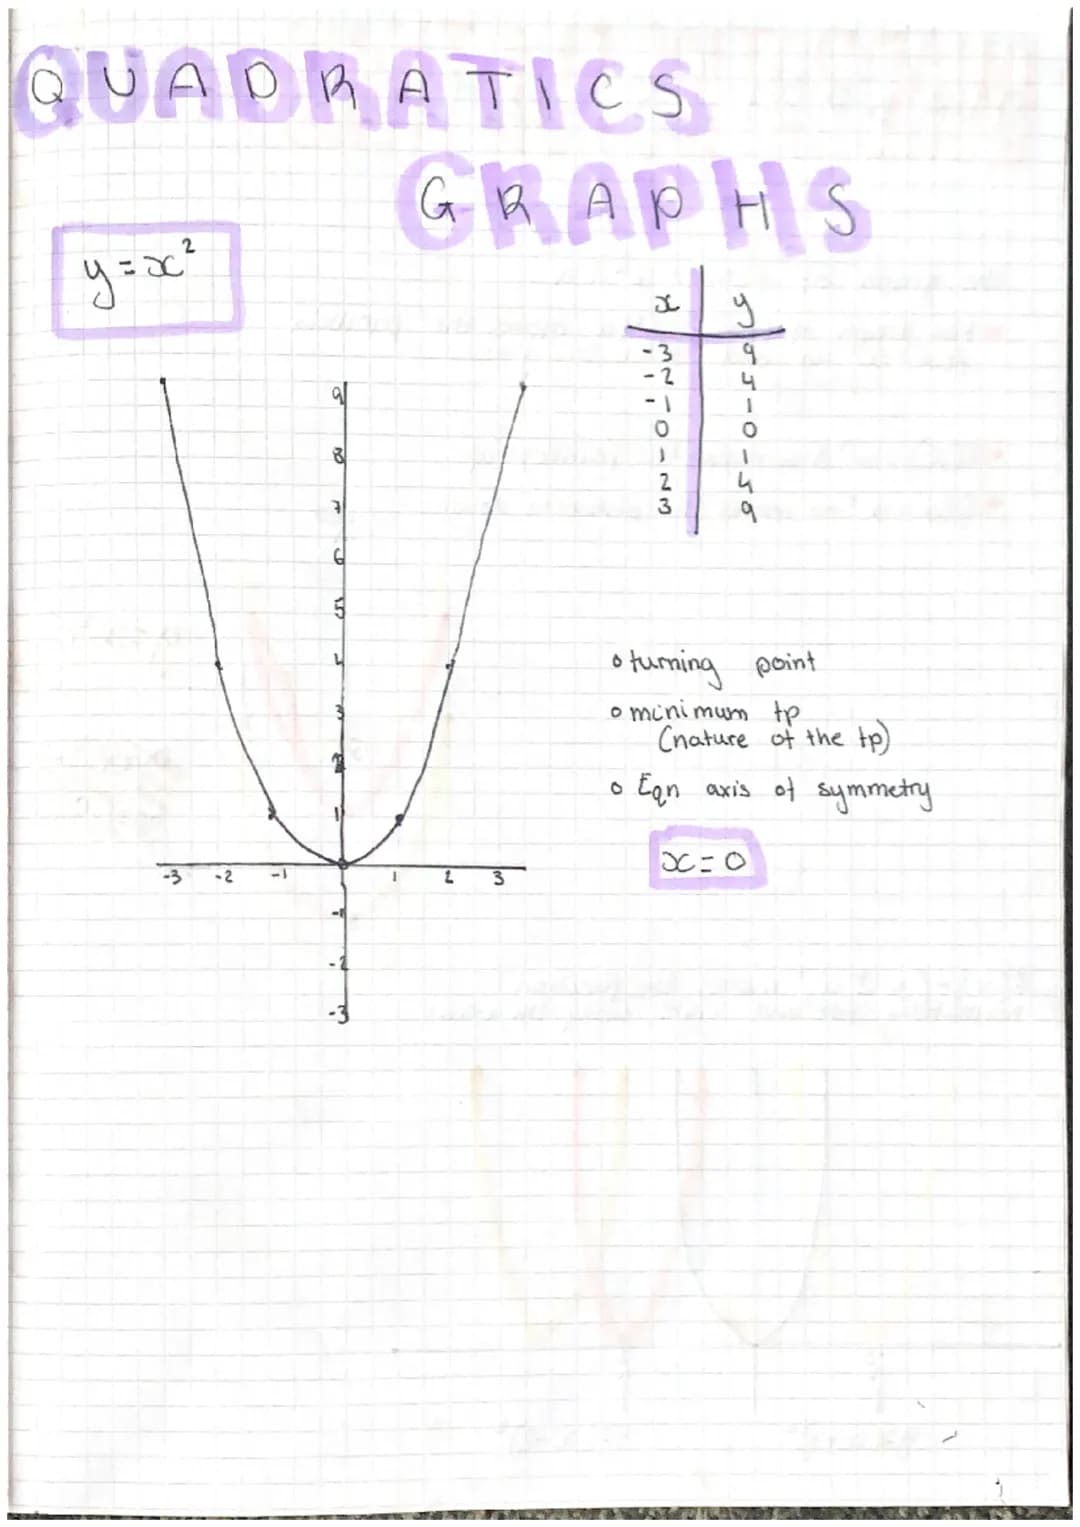 QUADRATICS
GRAPHS
y=x²
x y
-3 9
-2 4
-1 1
0 0
1 1
2 4
3 9
9
8
7
6
5
4
3
2
1
-3 -2 -1 1 2 3
-1
-2
-3
o turning point
o minimum tp
(nature of the tp)
o Eqn axis of symmetry
x=0